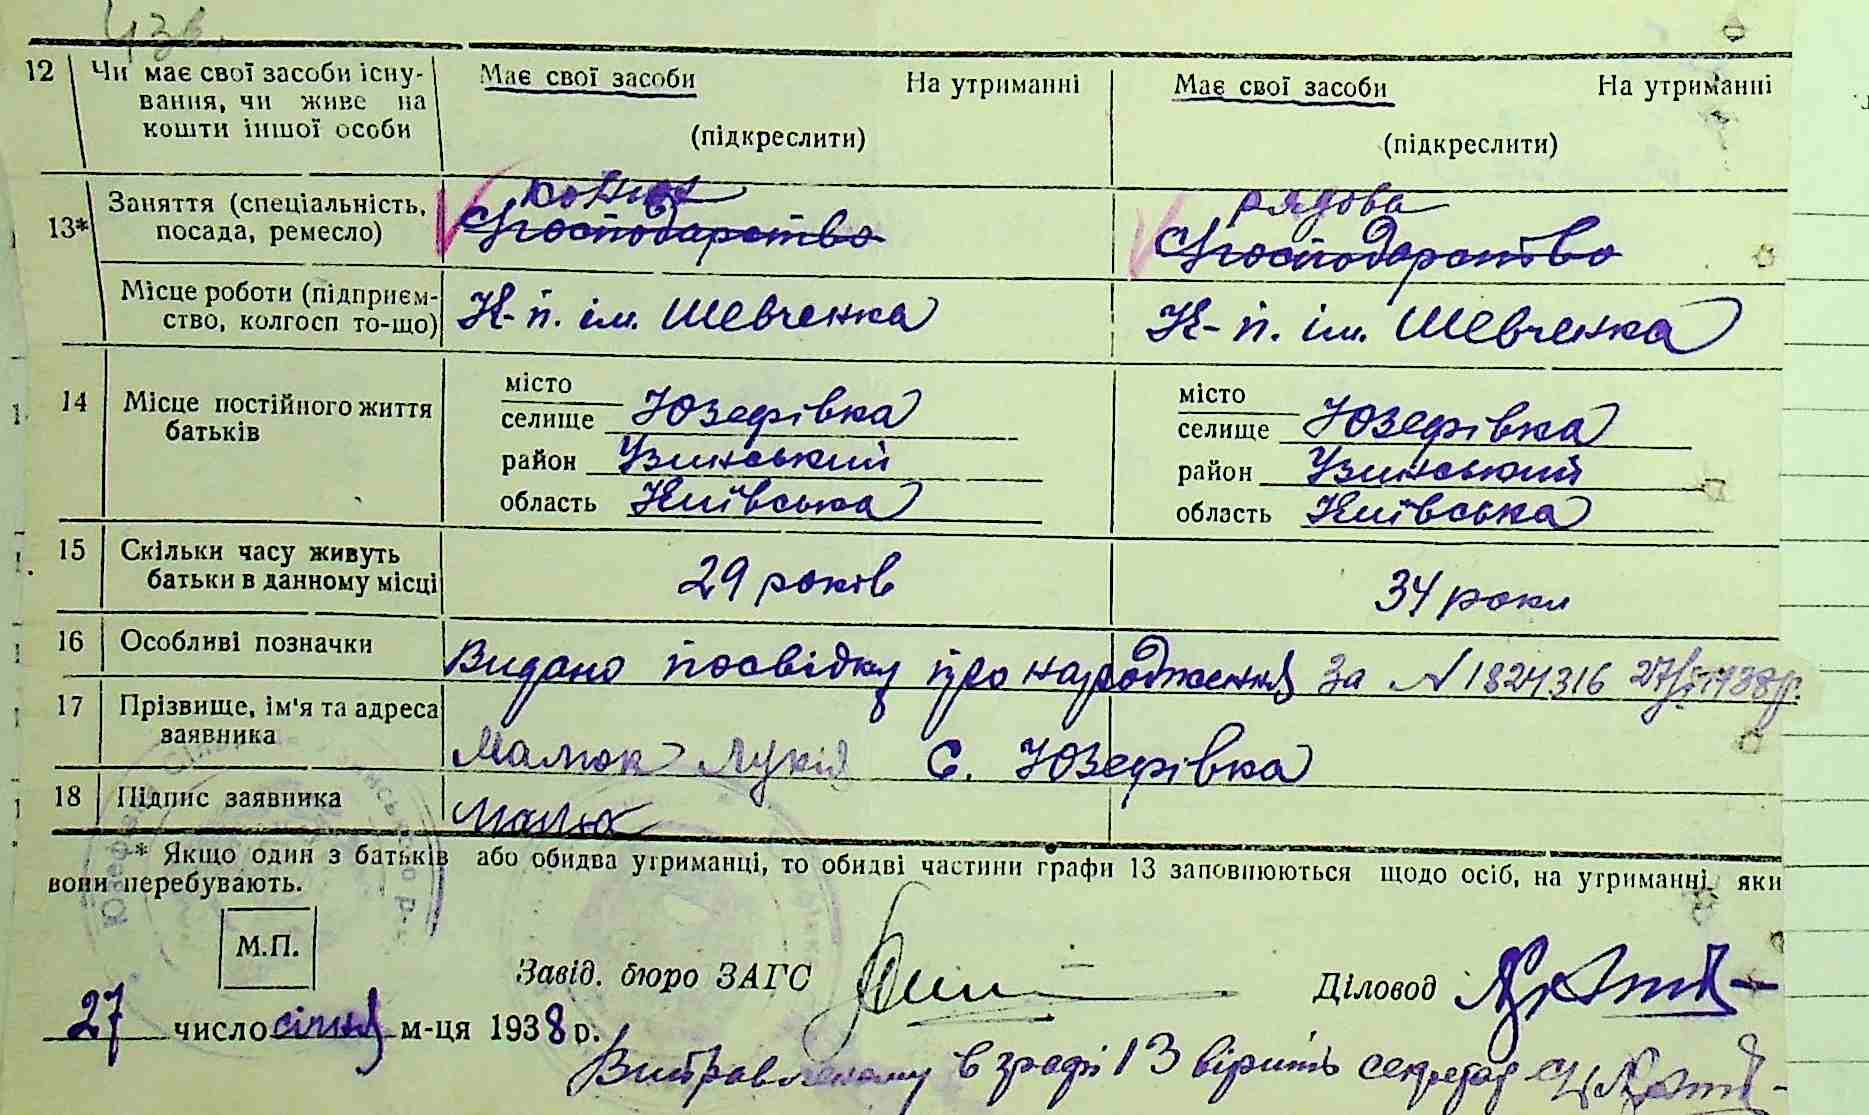 12 Чи має свої засоби існу- Має свої засоби На утриманні Має свої засоби На утриманні
вання, чи живе на
кошти іншої особи (підкреслити) (підкреслити)
конюх рядова
13* Заняття (спеціальність, Сг господарство Сг господарство
посада, ремесло)
Місце роботи (підприєм- К-п. ім. Шевченка К-п. ім. Шевченка
ство, колгосп то-що)
14 Місце постійного життя місто місто
батьків селище Юзефівка селище Юзефівка
район Узинський район Узинський
область Київська область Київська
15 Скільки часу живуть 29 років 34 роки
батьки в данному місці
16 Особливі позначки Видано посвідку про народження за № 1824316
17 Прізвище, ім'я та адреса
заявника Малюк Лукія С. Юзефівка
18 Підпис заявника Малюк
* Якщо один з батьків або обидва утриманці, то обидві частини графи 13 заповнюються щодо осіб, на утриманні яки
вони перебувають.
М.П.
Завід. бюро ЗАГС Діловод
27 число січня м-ця 1938 р.
Виправленому в графі 13 вірить секретар